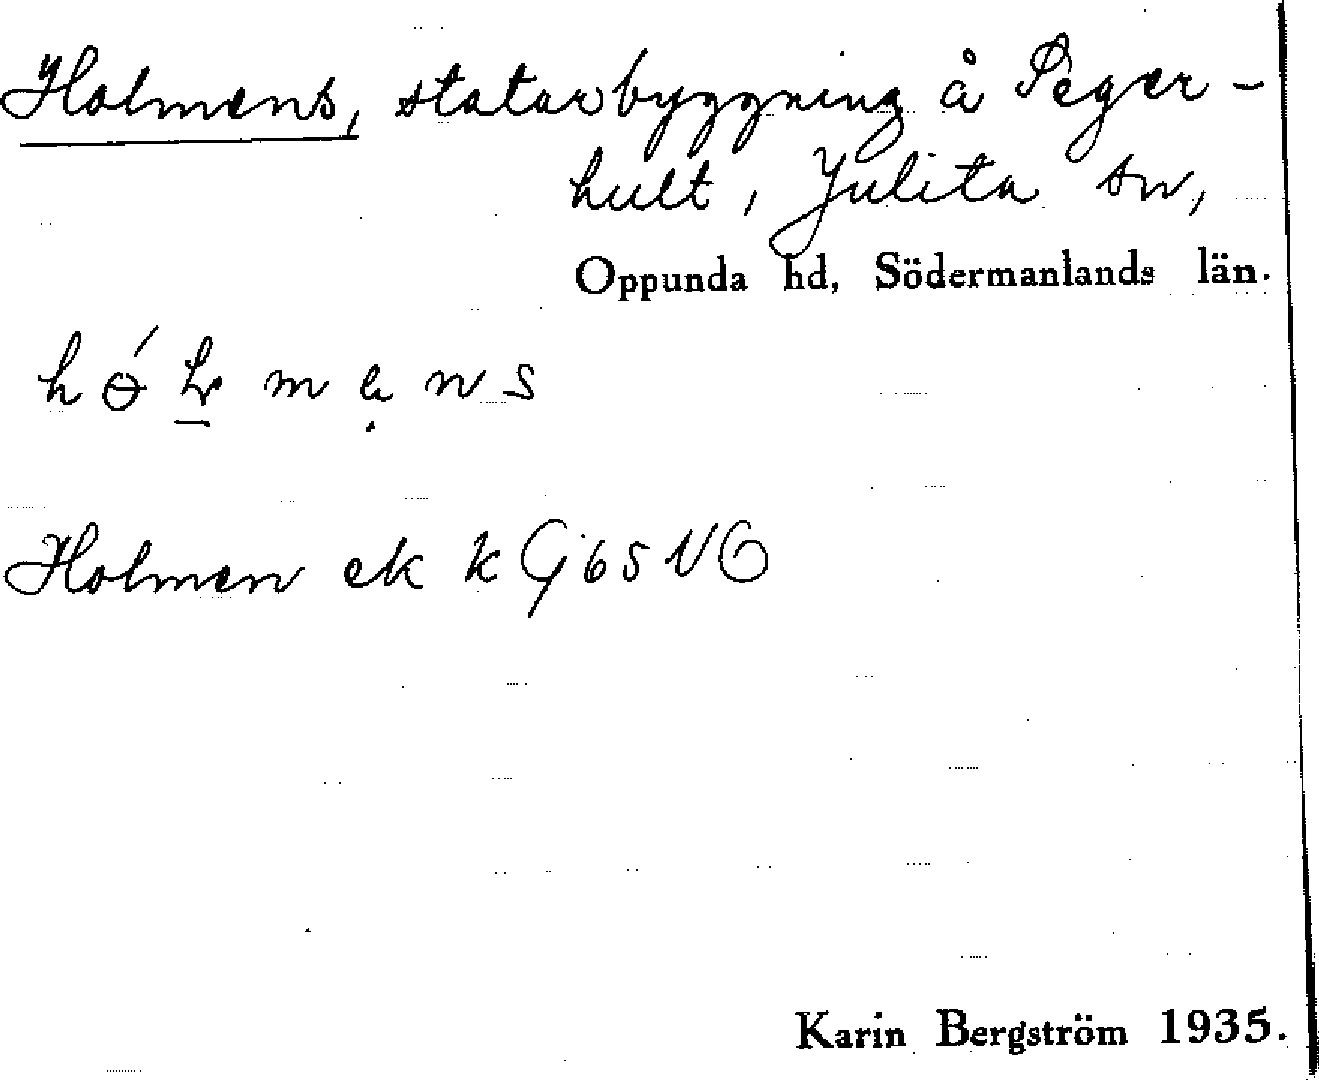 Holmens, statarbyggning å Peger-
hult, Julita sn,
Oppunda hd, Södermanlands län.
Holmen ek k G 65 NO
Karin Bergström 1935.